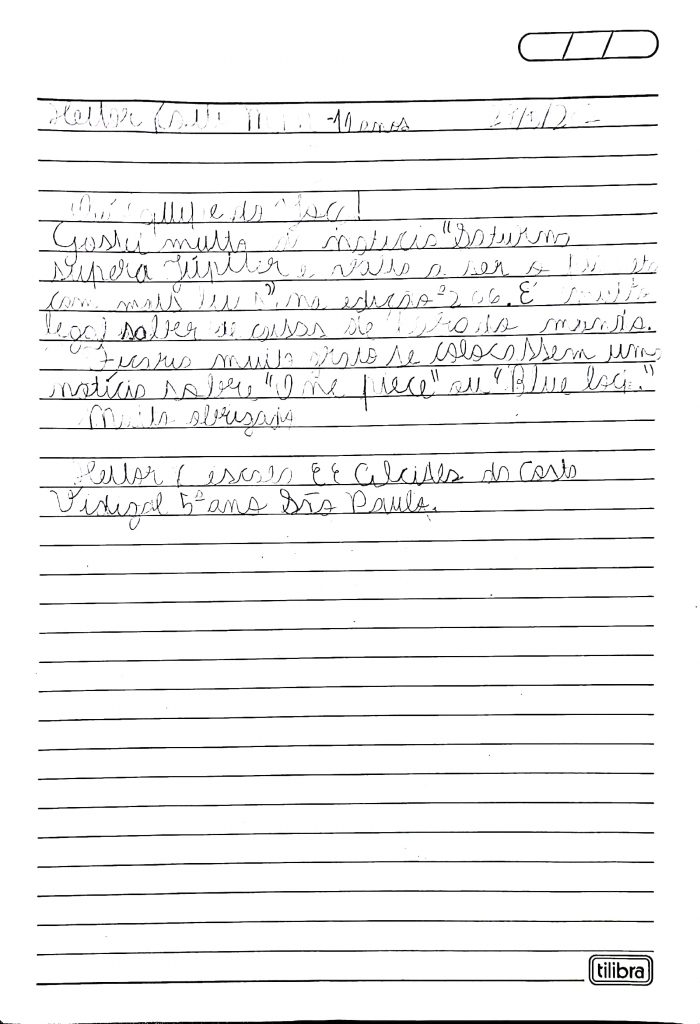 Heitor 11 anos
equipe do Joca!
Gostei muito da noticia "Saturno
supera Júpiter e volta a ser o
com mais luas", na edição 206. É muito
legal saber de coisas de fora do mundo.
Ficaria muito grato se colocassem uma
notícia sobre "One piece" ou "Blue lock."
Muito obrigado
Heitor C escola EE Alcides da Costa
Vidigal 5º ano São Paulo.
tilibra